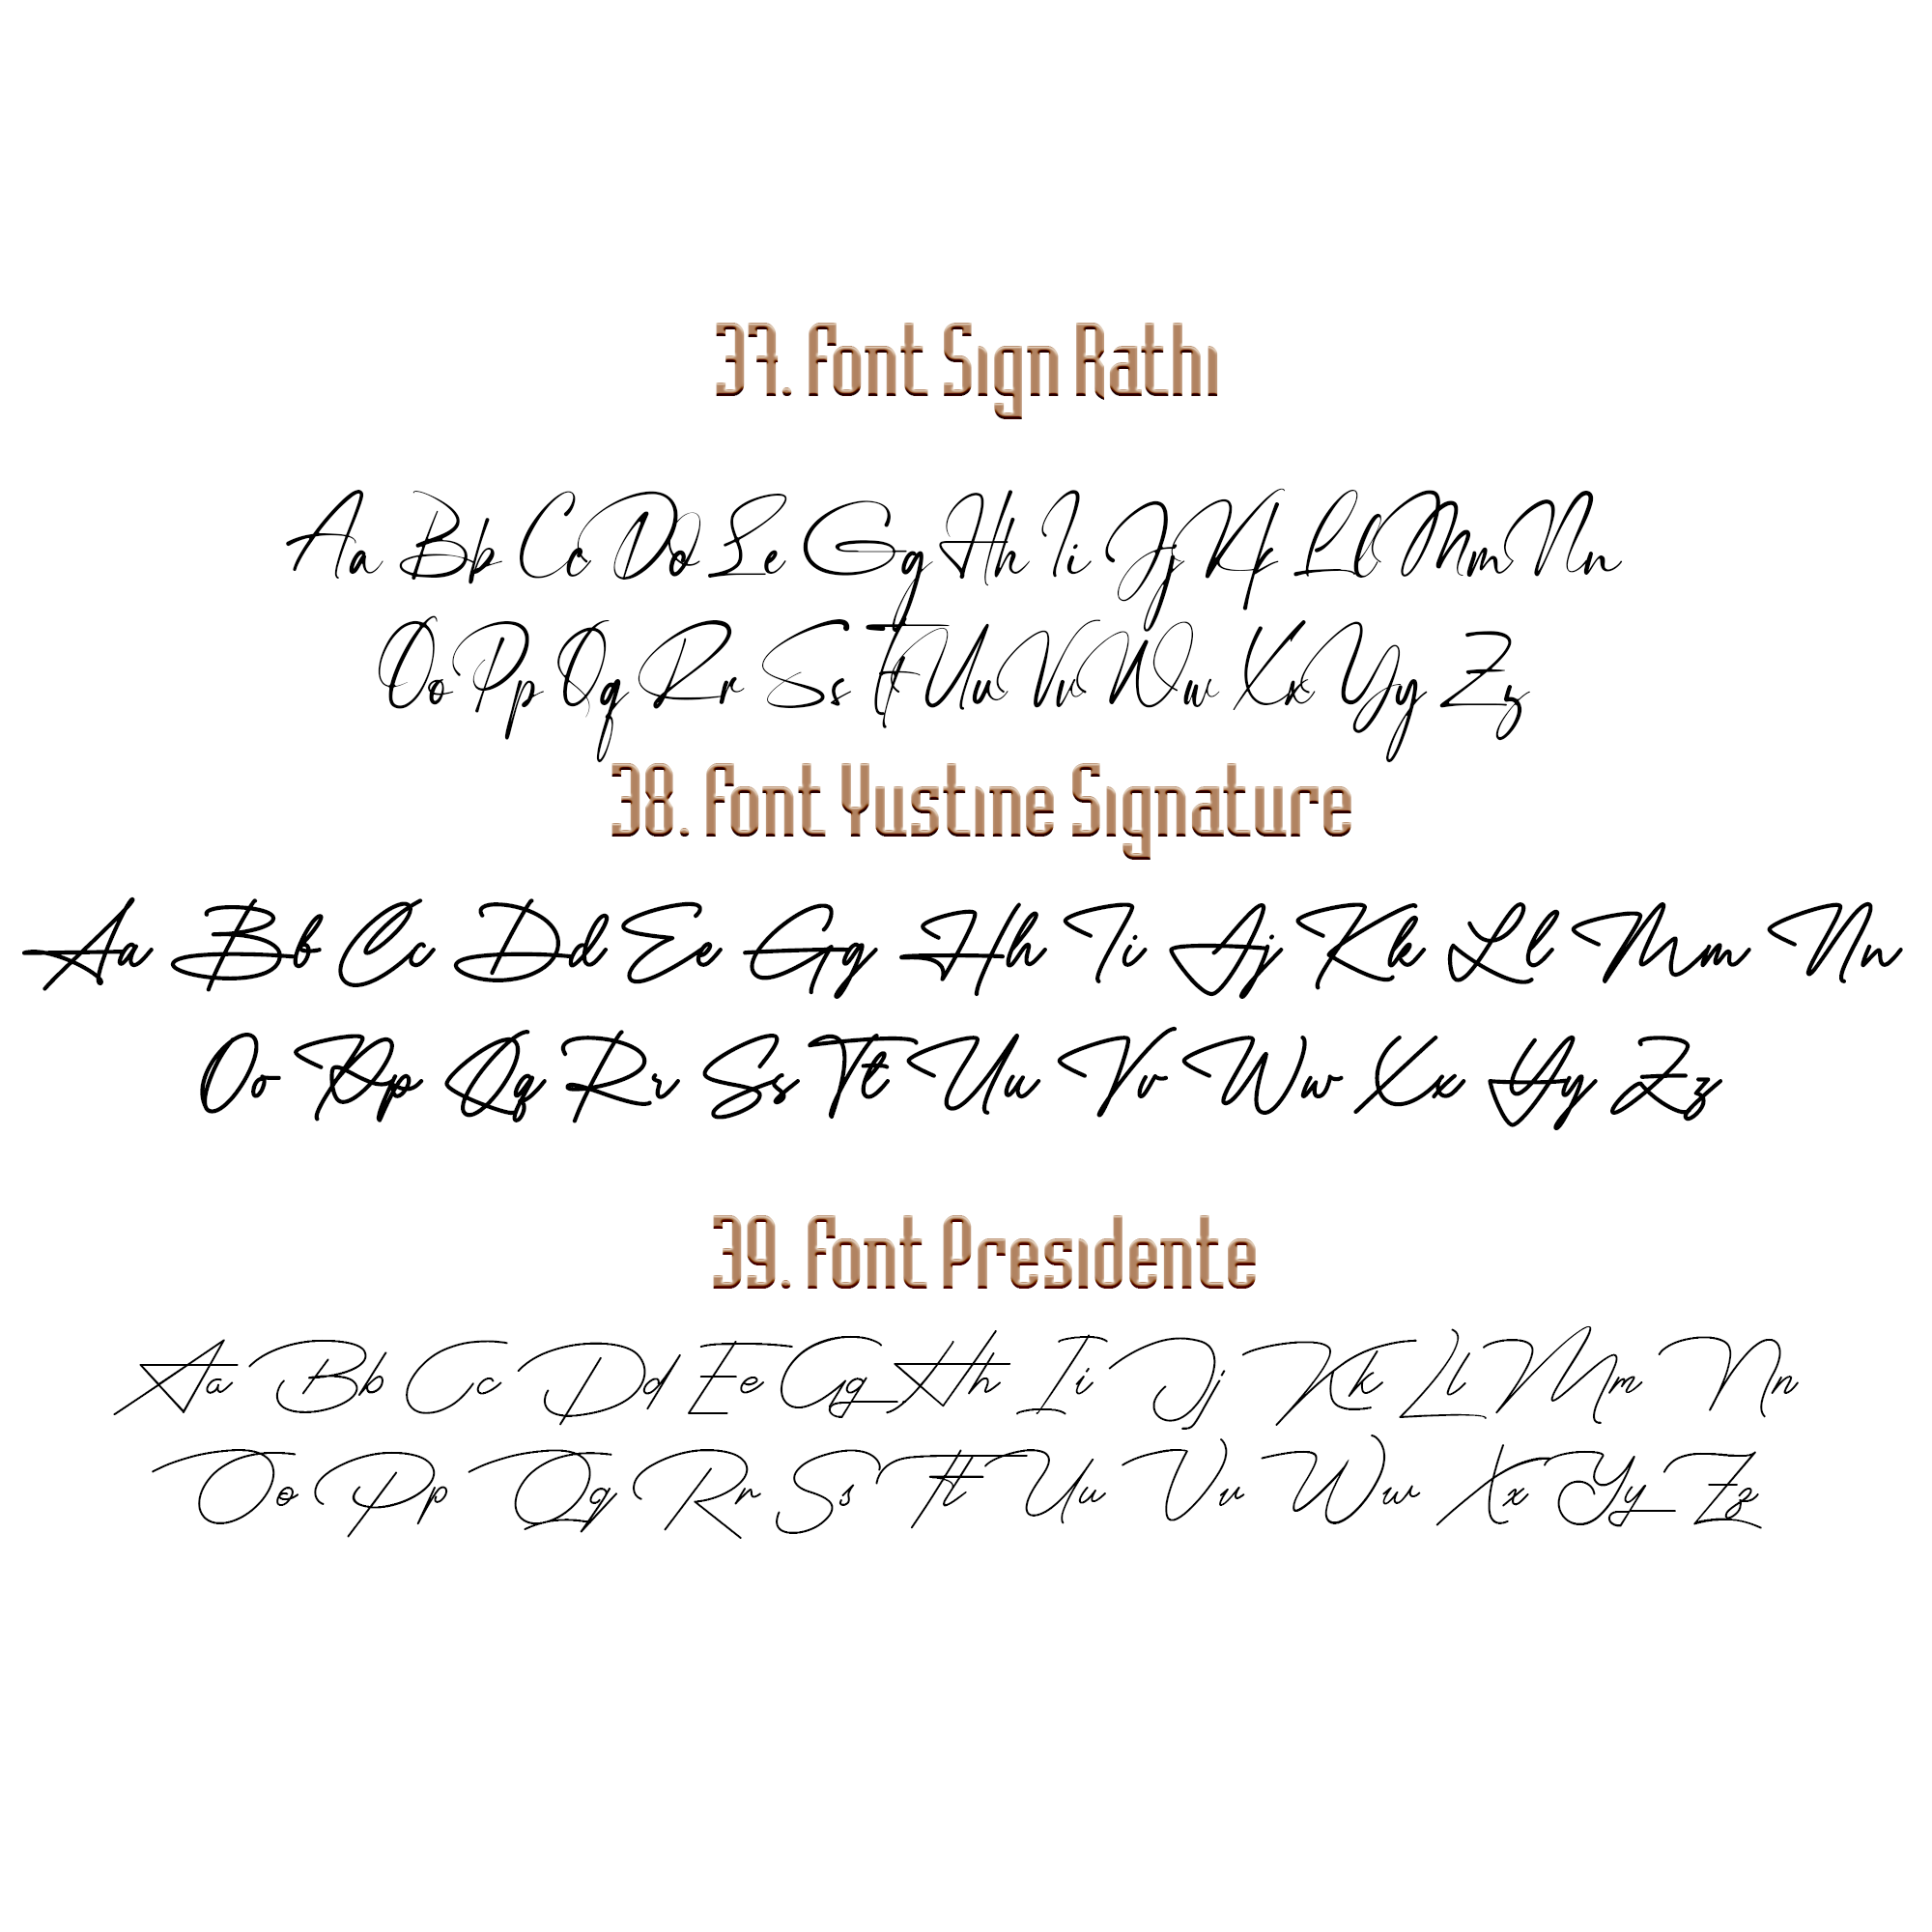 37. Font Sign Rathi
Aa Bb Cc Dd Ee Gg Hh Ii Jj Kk Ll Mm Nn
Oo Pp Qq Rr Ss Tt Uu Vv Ww Xx Yy Zz
38. Font Yustine Signature
Aa Bb Cc Dd Ee Gg Hh Ii Jj Kk Ll Mm Nn
Oo Pp Qq Rr Ss Tt Uu Vv Ww Xx Yy Zz
39. Font Presidente
Aa Bb Cc Dd Ee Gg Hh Ii Jj Kk Ll Mm Nn
Oo Pp Qq Rr Ss Tt Uu Vv Ww Xx Yy Zz